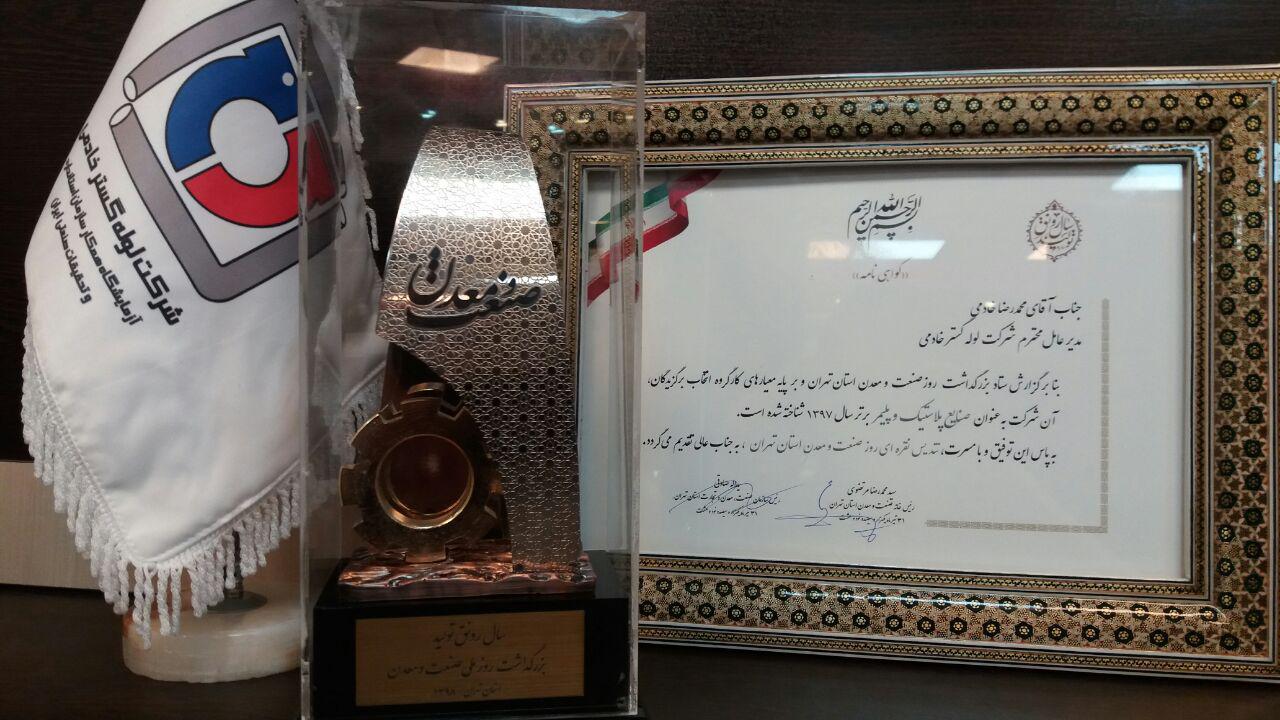 شرکت لوله گستر خادمی
آزمایشگاه همکار سازمان استاندارد
و تحقیقات صنعتی ایران
صنعت و معدن
سال رونق تولید
بزرگداشت روز ملی صنعت و معدن
استان تهران - ۱۳۹۸
بسم الله الرحمن الرحیم
سال رونق تولید
((گواهی نامه))
جناب آقای محمدرضا خادمی
مدیر عامل محترم شرکت لوله گستر خادمی
بنا بر گزارش ستاد بزرگداشت روز صنعت و معدن استان تهران و بر پایه معیارهای کارگروه انتخاب برگزیدگان،
آن شرکت به عنوان صنایع پلاستیک و پلیمر برتر سال ۱۳۹۷ شناخته شده است.
به پاس این توفیق و با مسرت، تندیس نقره ای روز صنعت و معدن استان تهران ، به جناب عالی تقدیم می گردد.
سید محمدرضا مرتضوی
رئیس خانه صنعت و معدن استان تهران
یدالله صادقی
رئیس سازمان صنعت، معدن و تجارت استان تهران